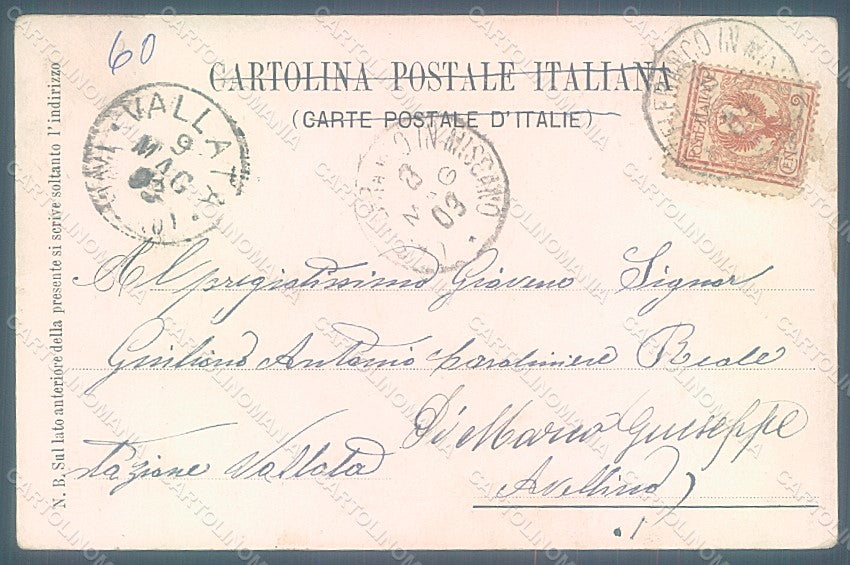 60
CARTOLINA POSTALE ITALIANA
(CARTE POSTALE D'ITALIE)
VALLATA
9
MAG
03
IN MISCANO
3
MAG
03
CO IN MI
POSTE ITALIANE
2
CENT
N. B. Sul lato anteriore della presente si scrive soltanto l'indirizzo
Al pregiatissimo Giovene Signor
Giuliano Antonio Carabiniere Reale
Di Marco Giuseppe
stazione Vallata
Avellino)
CARTOLINOMANIA